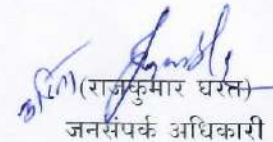 (राजकुमार घरत)
जनसंपर्क अधिकारी